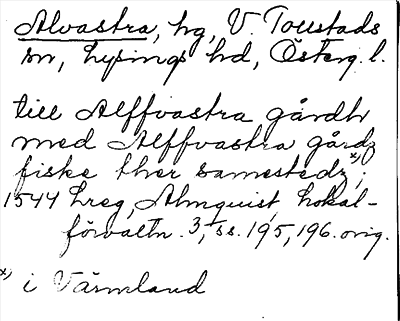 Alvastra, hg, V. Tollstads
sn, Lysings hd, Österg. l.
till Alffvastra gårdh
med Alffvastra gårdz
fiske ther samestedz x);
1544 Lreg, Almquist, Lokal-
förvaltn. 3, ss. 195, 196. orig.
x) i Värmland